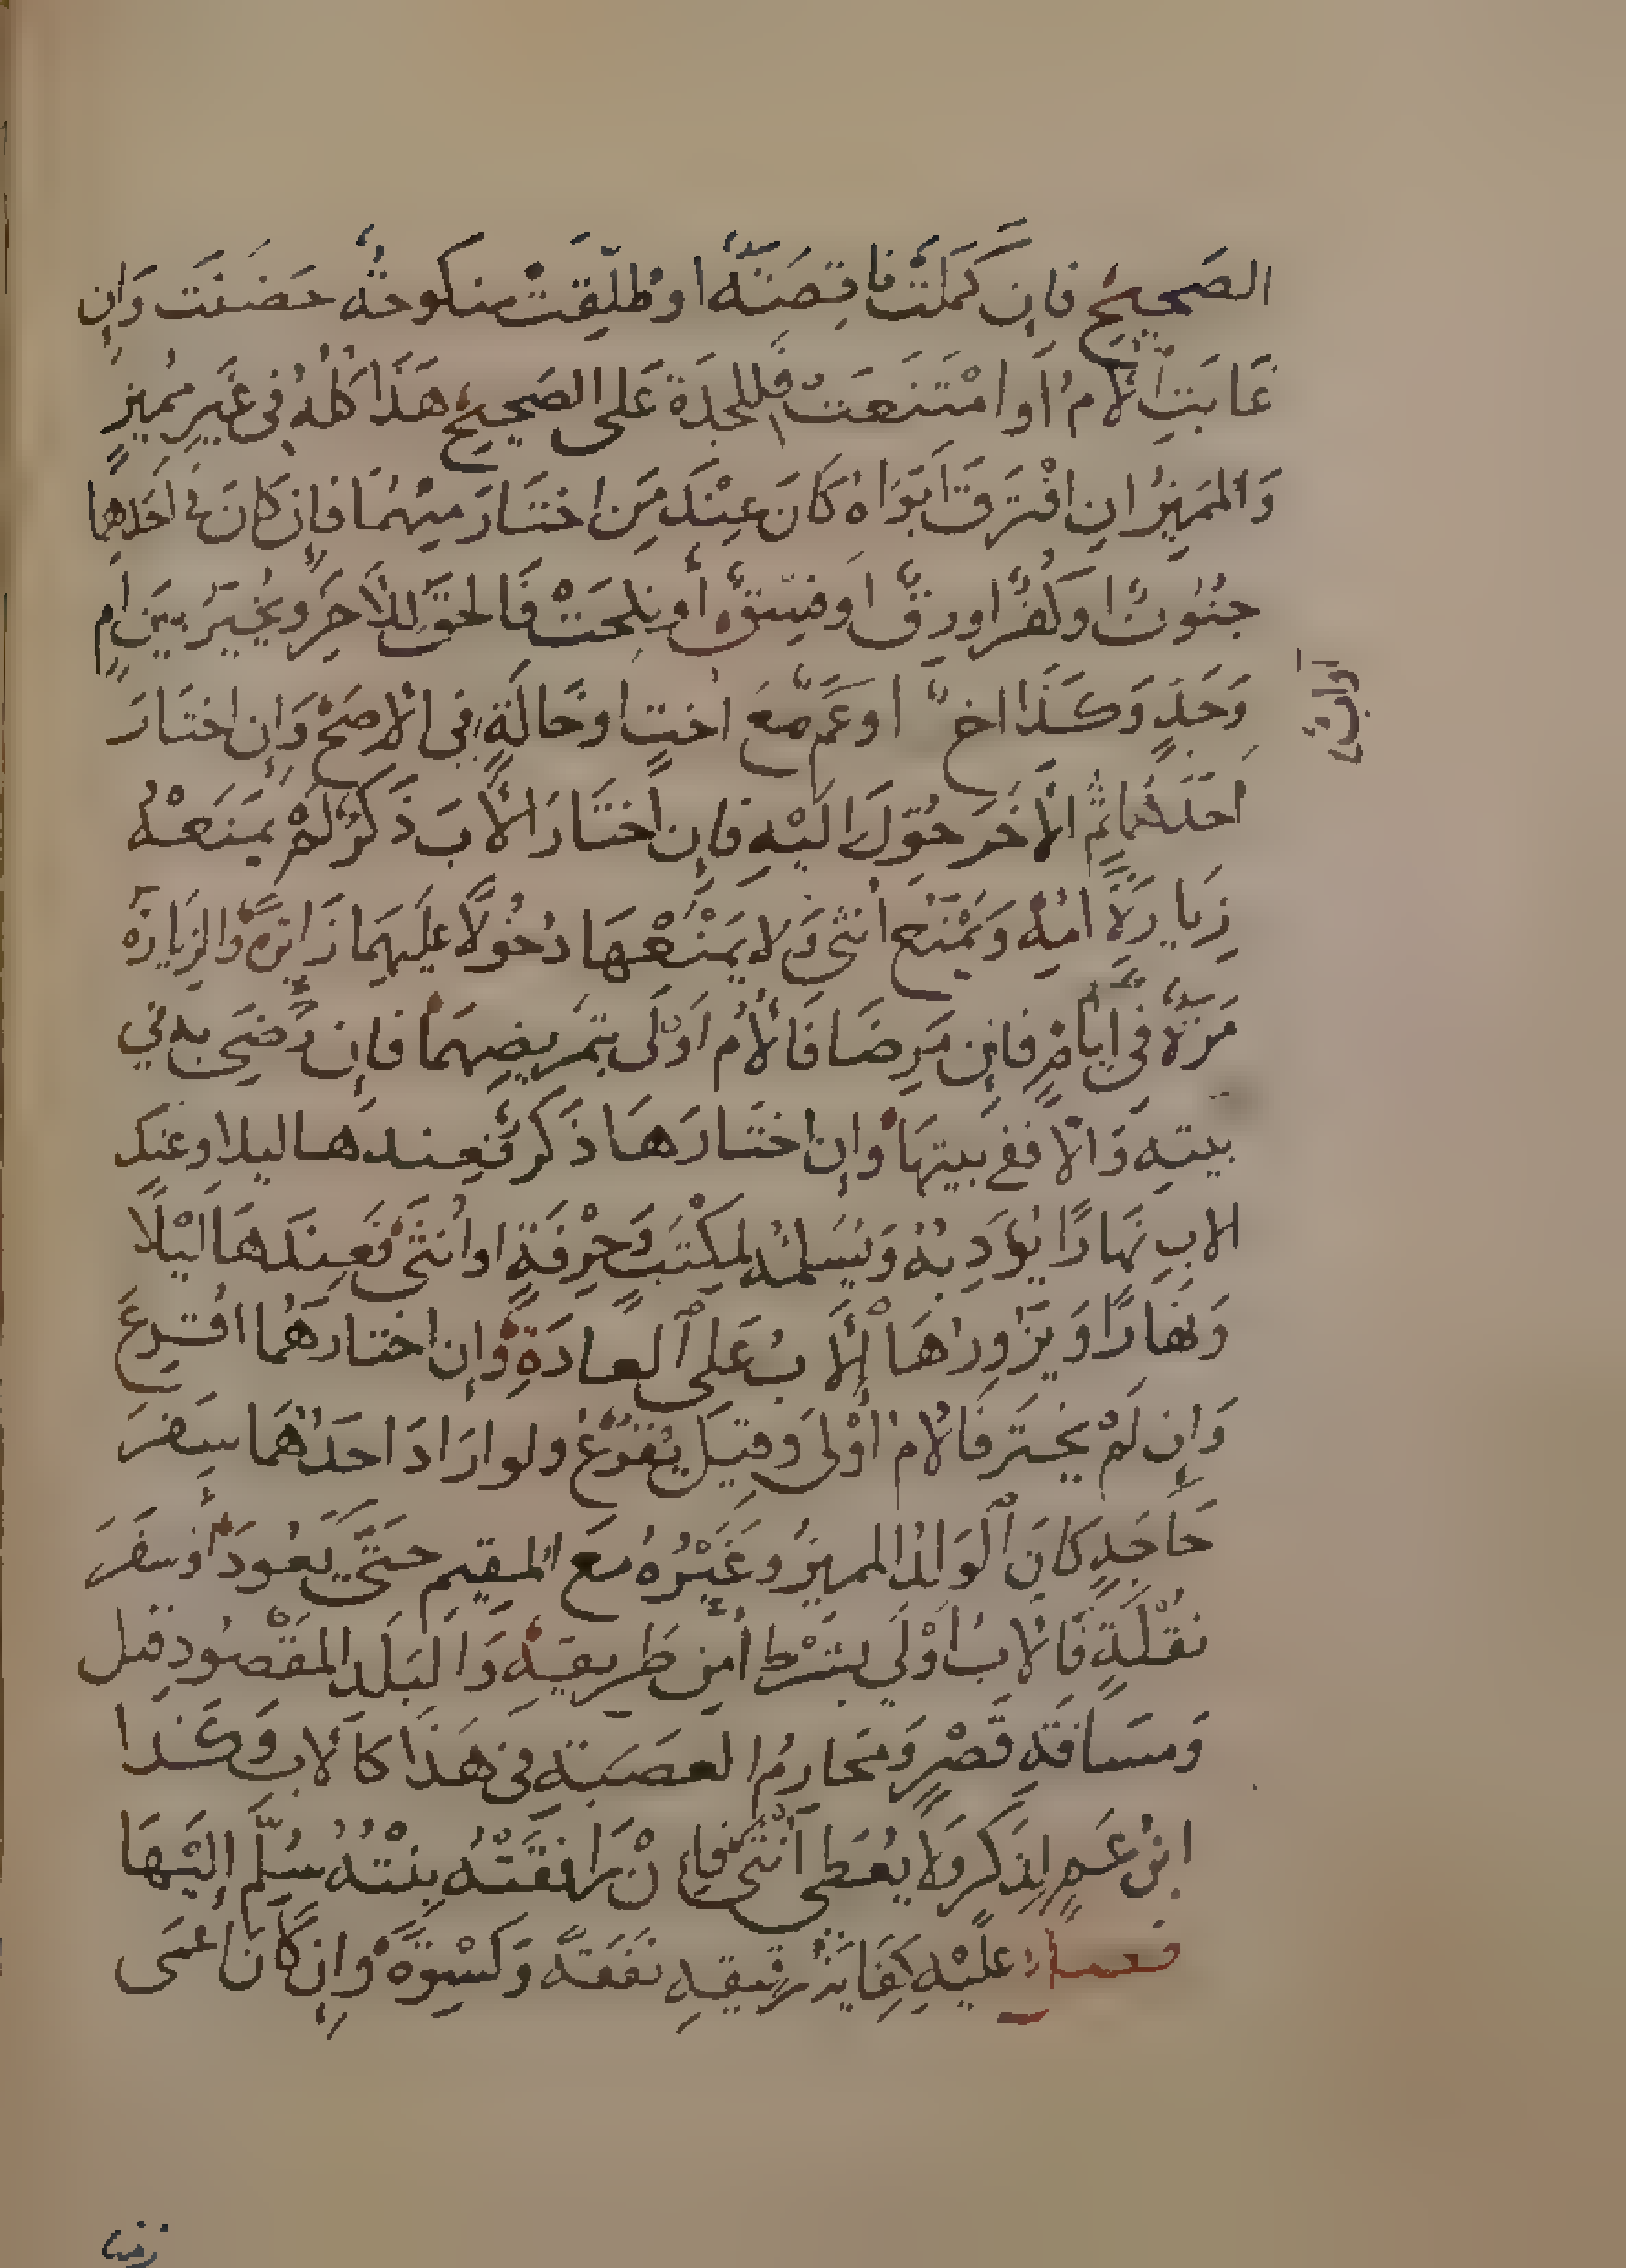 الصَحِيحِ فَإِن كَمَلَتْ نَاقِصَةٌ اوْ طُلِّقَتْ منكوحَةٌ حَضَنَت وَإِن
غَابَتِ الْأمُ أَو امْتَنَعَتْ فَلِلجَدَة عَلى الصَحِيحِ هَذَا كُلُهُ فِى غَيرِ مُمَيزٍ
وَالممَيزُ ان افْتَرَقَ أبَوَاهُ كَانَ عِنْدَ مَن اختَارَ مِنهُمَا فَإِن كَانَ في أحَدِهِمَا
جنُونٌ او كُفرٌ اورِقٌ اوفِسقٌ أونكحَتْ فَالحَقُ لِلاٰخَرِ ويُخَيَرُ بَينَ امٍ
وَجَدٍ وَكَذَا اخٌ اوعَمٌ مَعَ اختٍ اوخَالَةٍ فِى الْأصَحِ وَإِن اختَارَ
أواب
احَدَهُمَا ثم الْاٰخَرَ حُوِّلَ الَيْهِ فَإِن اختَارَ الْأبَ ذَكَرٌ لَمْ يَمنَعْهُ
زِيَارَةَ امِهِ وَيَمْنَعُ انثى وَلا يَمْنَعْهَا دُخُولًا عَلَيهِمَا زَائِرةً وَالزيَارَةُ
مَرَةً فِي أيَامٍ فَإِن مَرِضَا فَالْأُم أوْلَى بِتَمرِيضِهِمَا فَإِن رَضِيَ بِهِ في
بيتِهِ وَالّا فَفي بَيتِهَا وَإِن اختَارَهَا ذَكَرٌ فَعِندَهَا ليلا وعندَ
الابِ نَهَارًا يُؤَدِبُهُ وَيُسَلمُهُ لِمكْتَبٍ وَحِرْفَةٍ اوأُنثَى فَعِندَهَا لَيْلًا
وَنَهَارًا وَيَزُورُهَا الْأَبُ عَلى العادَةِ وَإِن اختارَهُمَا اقُرِعَ
وَإِن لَمْ يَختَر فَالأم أوْلى وَقِيلَ يُقرَعُ ولو ارَادَ احَدُهُمَا سفَرَ
حَاجَةٍ كَانَ الوَلَدُ المميزُ وغَيْرُهُ مَعَ المقِيمِ حَتَّى يَعُودَ أوْسفَرَ
نُقْلَةٍ فَالأبُ أوْلَى بشَرْط أمنِ طَرِيقِهِ وَالبَلَدِ المَقْصُودِ قيل
وَمسَافَةِ قَصْرٍ وَمَحَارِمُ العصَبَةِ فى هَذَا كَالْأبِ وَكَذَا
ابنُ عَمٍ لِذَكَرٍ وَلا يُعْطَى أُنْثَى فَإِنْ رَافَقَتْهُ بِنْتُهُ سُلِّمَ إِلَيْهَا
فصل عَلَيْهِ كِفَايَةُ رقيقِهِ نَفَقَةً وَكِسْوَةً وَإِن كَانَ أعْمَى
زمنا